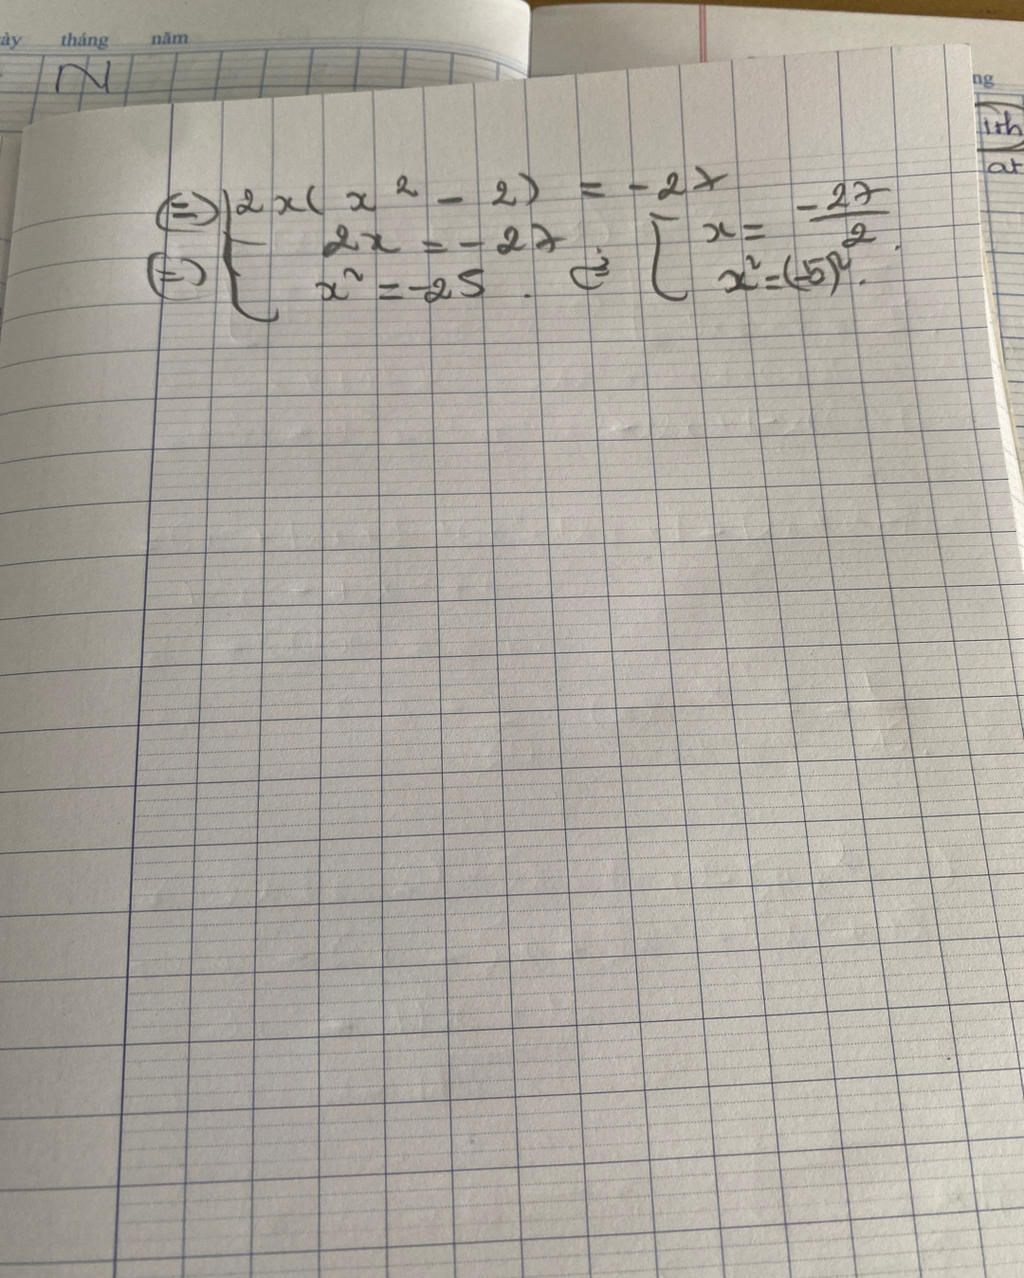 ày tháng năm
N
ng
ith
at
(=) 2x(x² - 2) = -27
(=) [ 2x = -27 . (=) [ x = -27/2 .
x² = -25 . x² = (-5)² .